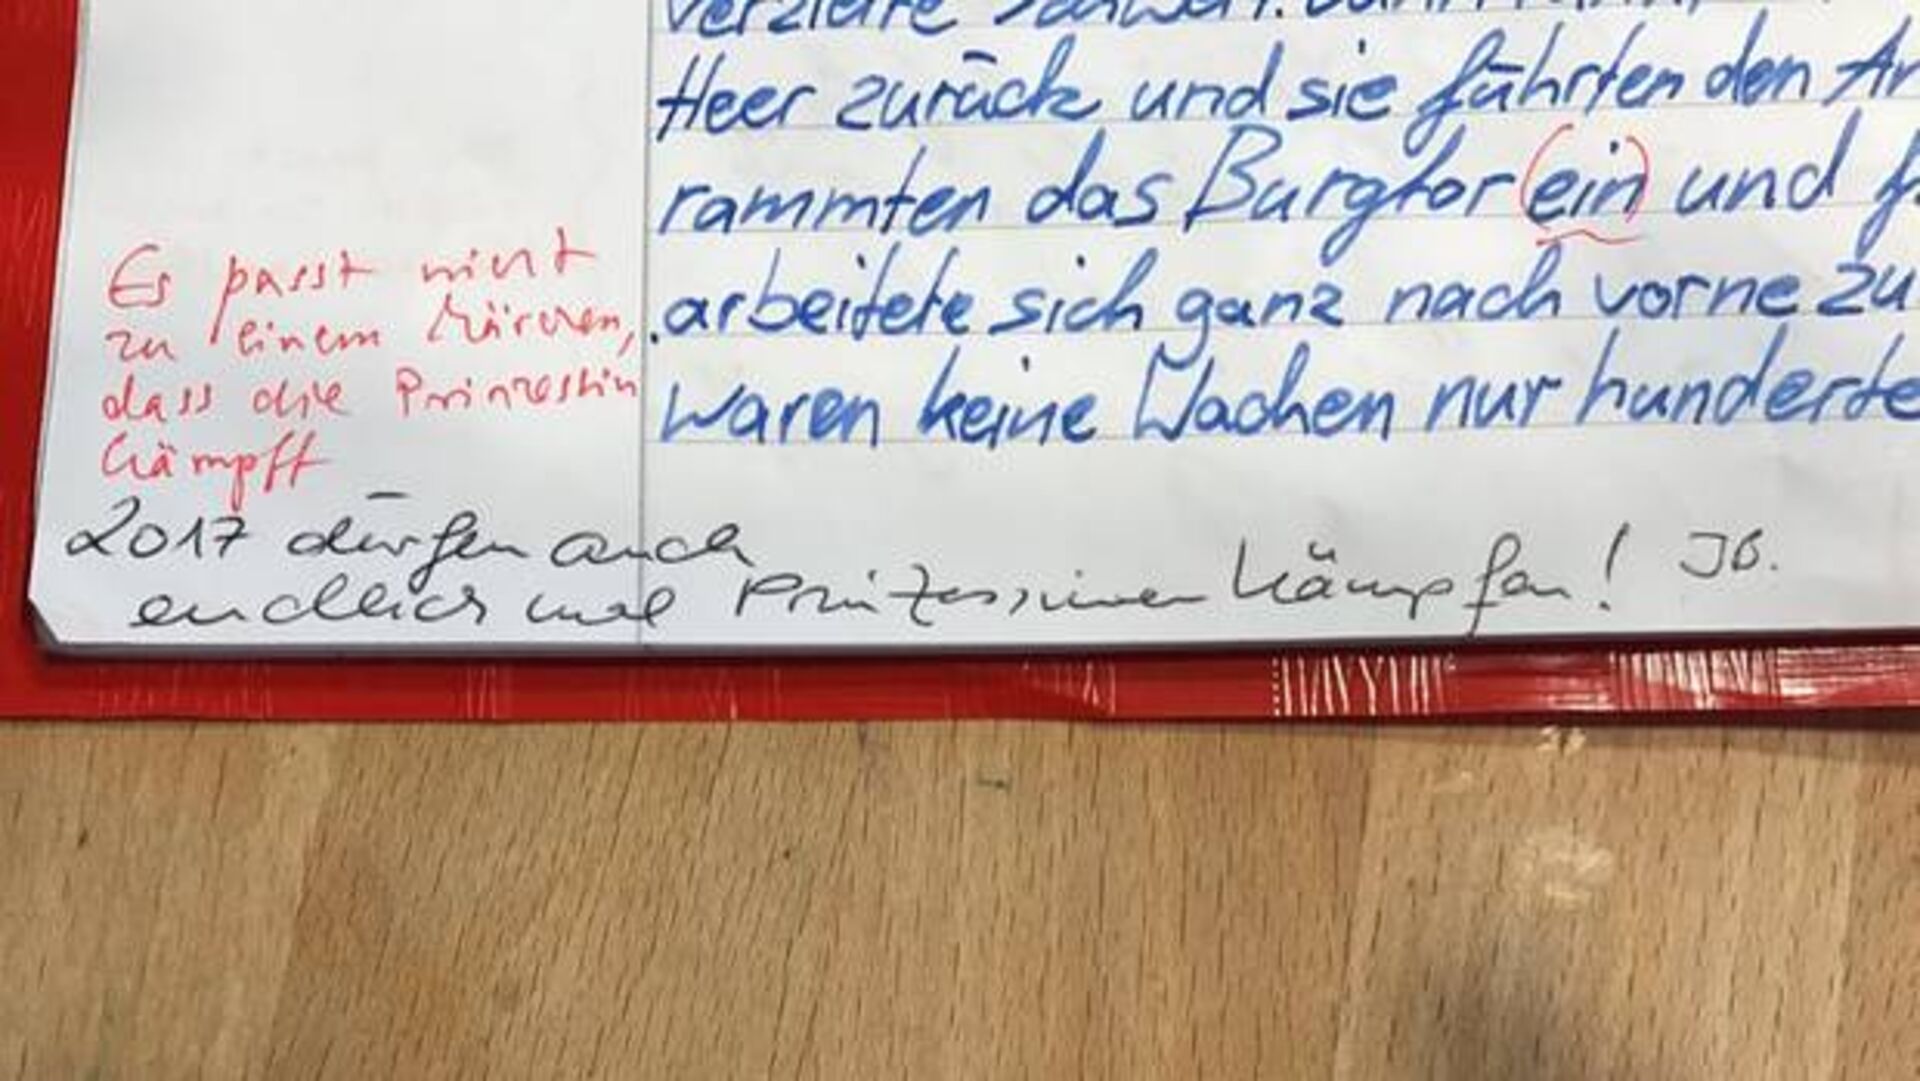 verzierte Schwert. Dann
Heer zurück und sie führten den An
rammten das Burgtor (ein) und f
arbeitete sich ganz nach vorne zu
waren keine Wachen nur hunderte
Es passt nicht
zu einem Märchen,
dass die Prinzessin
kämpft
2017 dürfen auch
endlich mal Prinzessinnen kämpfen! JB.